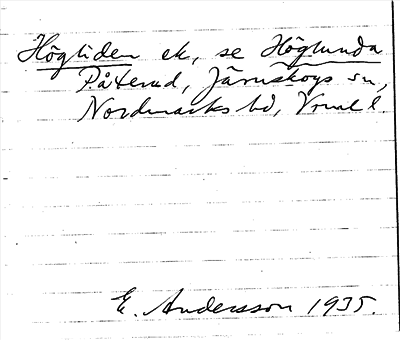 Högliden ek, se Höglunda
Påterud, Järnskogs sn,
Nordmarks hd, Vrml l.
E. Andersson 1935.